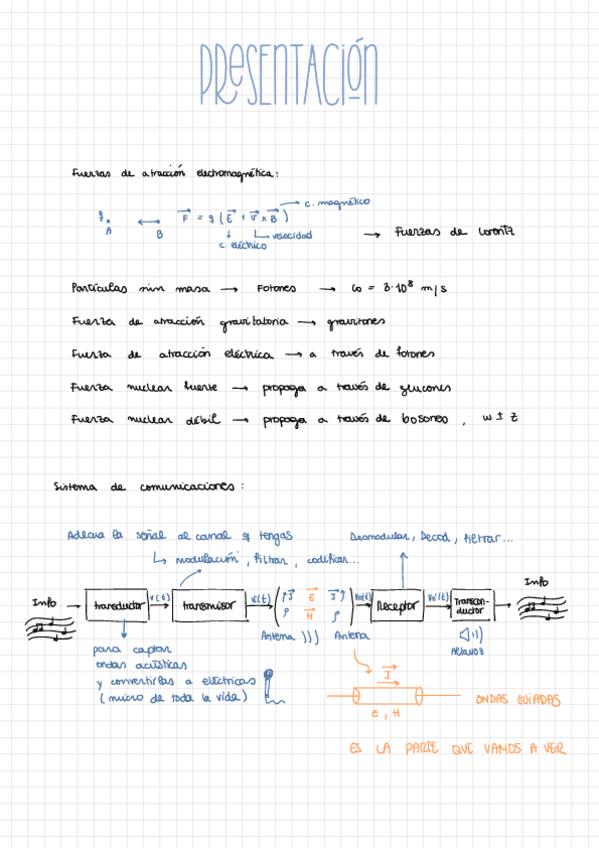 PRESENTACIÓN
Fuerzas de atracción electromagnética:
q. A ↔ B F = q ( E + V × B ) → c. magnético
c. eléctrico velocidad → Fuerzas de Lorentz
Partículas sin masa → Fotones → C0 = 3·10⁸ m/s
Fuerza de atracción gravitatoria → gravitones
Fuerza de atracción eléctrica → a través de fotones
Fuerza nuclear fuerte → propaga a través de gluones
Fuerza nuclear débil → propaga a través de bosones, W ± Z
Sistema de comunicaciones:
Adecua la señal al canal q tengas
↳ modulación, filtrar, codificar...
Desmodular, Decod, filtrar...
Info → transductor v(t) → transmisor v(t) → ( ↑J E J↑ ρ H ρ ) v0(t) → Receptor v0'(t) → Transcon-ductor → Info
Antena ))) Antena
para captar
ondas acústicas
y convertirlas a eléctricas
(micro de toda la vida)
J
E, H
ONDAS GUIADAS
ES LA PARTE QUE VAMOS A VER